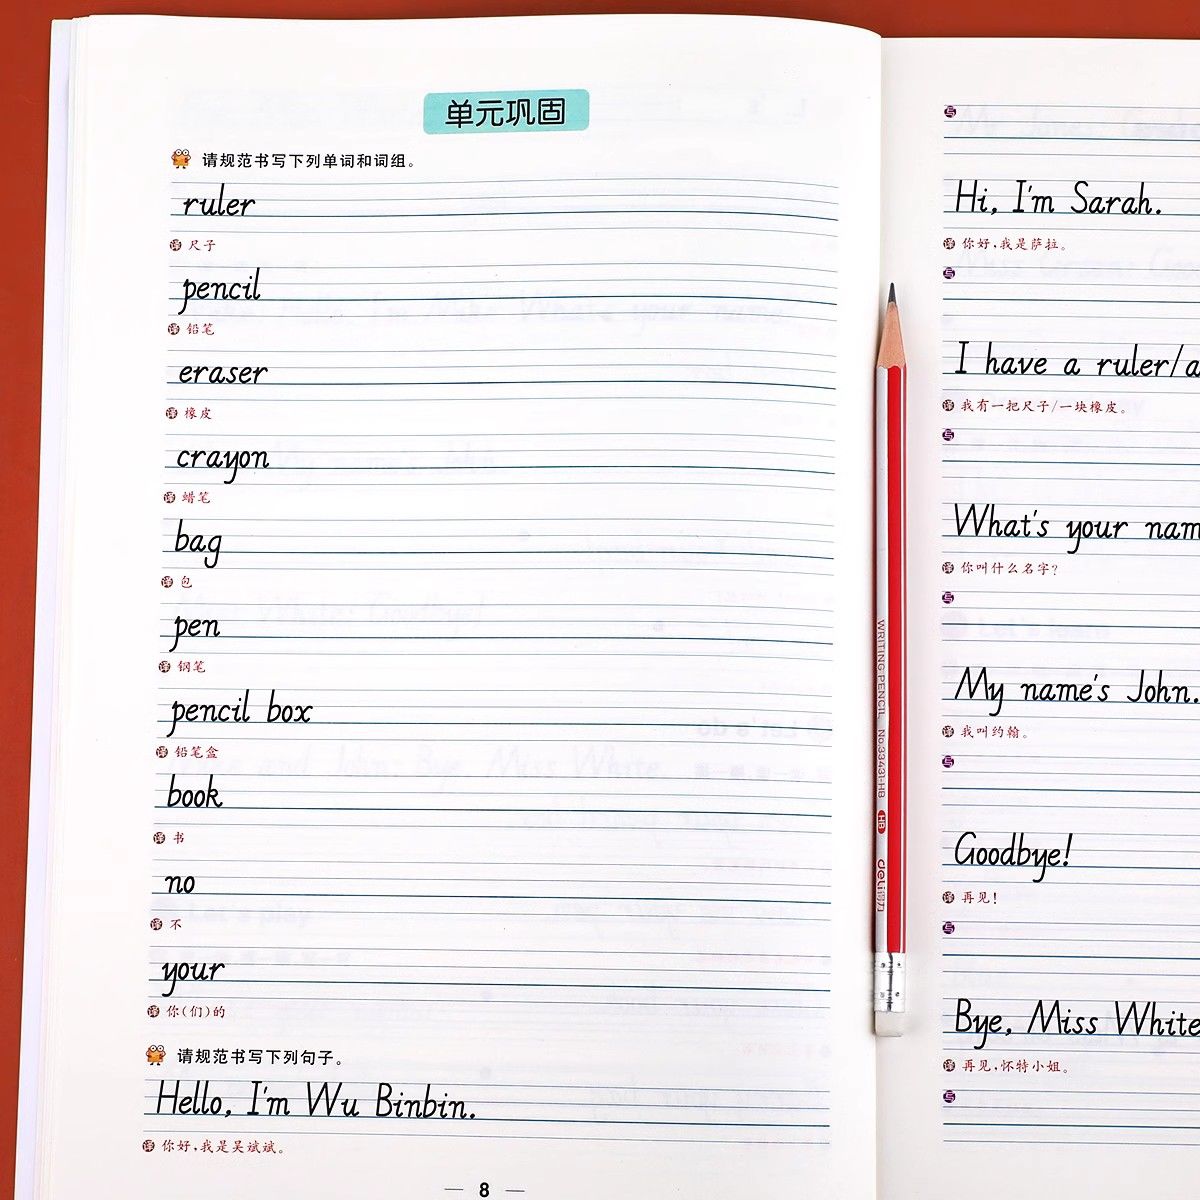 单元巩固
请规范书写下列单词和词组。
ruler
译 尺子
pencil
译 铅笔
eraser
译 橡皮
crayon
译 蜡笔
bag
译 包
pen
译 钢笔
pencil box
译 铅笔盒
book
译 书
no
译 不
your
译 你(们)的
请规范书写下列句子。
Hello, I'm Wu Binbin.
译 你好,我是吴斌斌。
— 8 —
写
Hi, I'm Sarah.
译 你好,我是萨拉。
写
I have a ruler/a
译 我有一把尺子/一块橡皮。
写
What's your nam
译 你叫什么名字?
写
My name's John.
译 我叫约翰。
写
Goodbye!
译 再见!
写
Bye, Miss White
译 再见,怀特小姐。
写
WRITING PENCIL No.33431-HB HB deli得力